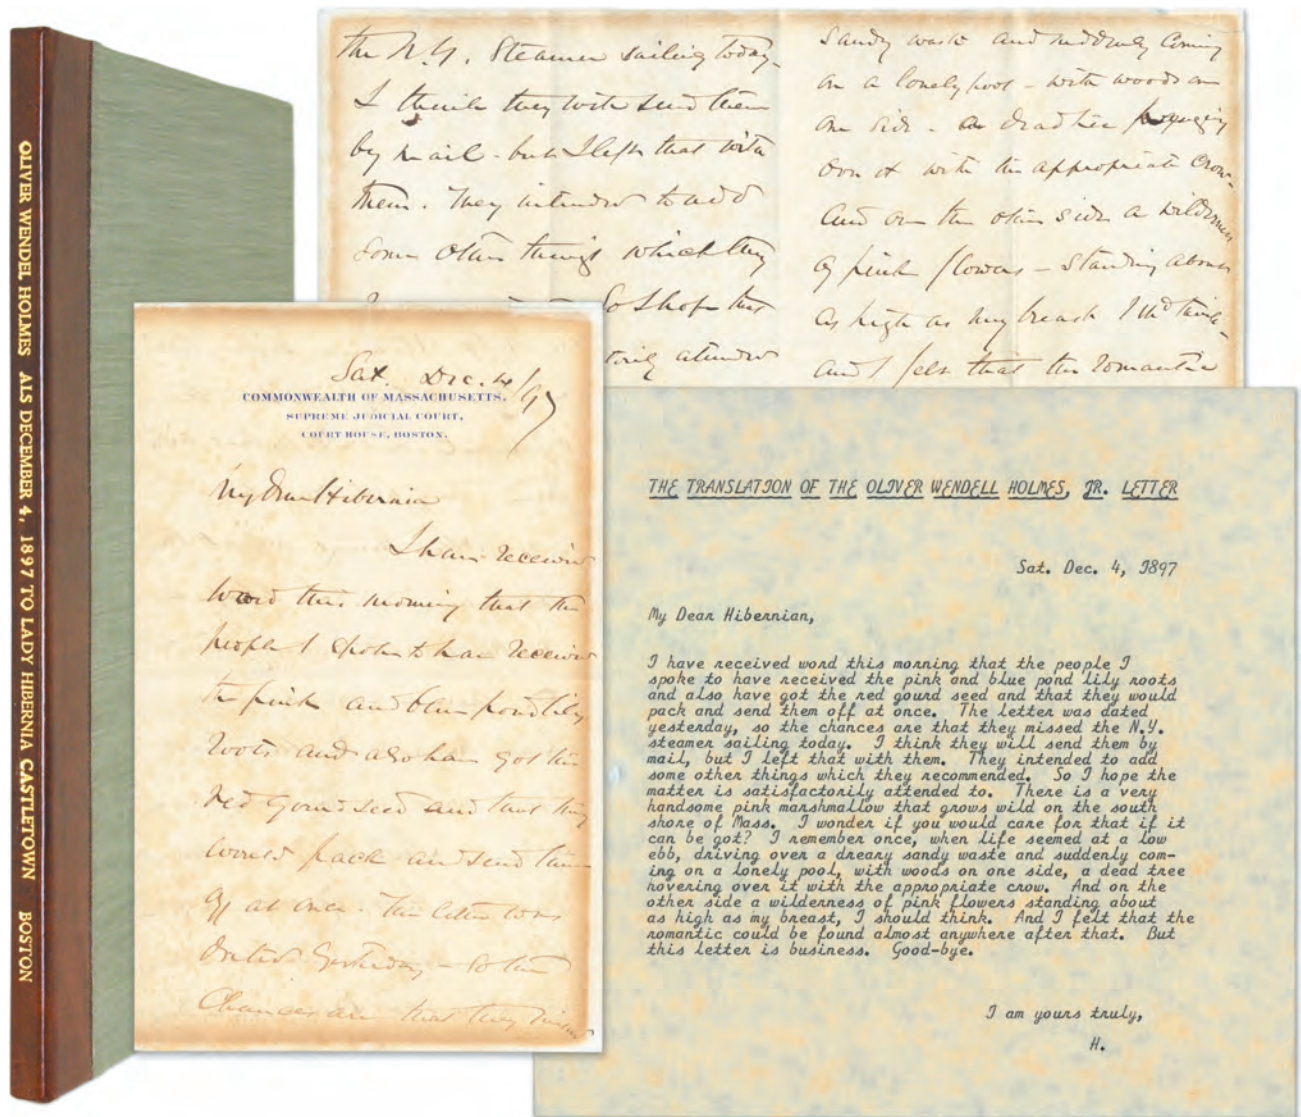 OLIVER WENDEL HOLMES ALS DECEMBER 4, 1897 TO LADY HIBERNIA CASTLETOWN BOSTON
the N.Y. Steamer sailing today.
I think they will send them
by mail - but I left that with
them. They intended to add
some other things which they
So I hope the
attended
sandy waste and suddenly coming
on a lonely pool - with woods on
one side - a dead tree
over it with the appropriate crow -
and on the other side a wilderness
of pink flowers - standing about
as high as my breast I shd think -
and I felt that the romantic
Sat. Dec. 4/97
COMMONWEALTH OF MASSACHUSETTS,
SUPREME JUDICIAL COURT,
COURT HOUSE, BOSTON.
My dear Hibernia
I have received
word this morning that the
people I spoke to have received
the pink and blue pond lily
roots and also have got the
red gourd seed and that they
would pack and send them
off at once - The letter was
dated yesterday - so the
chances are that they missed
THE TRANSLATION OF THE OLIVER WENDELL HOLMES, JR. LETTER
Sat. Dec. 4, 1897
My Dear Hibernian,
I have received word this morning that the people I
spoke to have received the pink and blue pond lily roots
and also have got the red gourd seed and that they would
pack and send them off at once. The letter was dated
yesterday, so the chances are that they missed the N.Y.
steamer sailing today. I think they will send them by
mail, but I left that with them. They intended to add
some other things which they recommended. So I hope the
matter is satisfactorily attended to. There is a very
handsome pink marshmallow that grows wild on the south
shore of Mass. I wonder if you would care for that if it
can be got? I remember once, when life seemed at a low
ebb, driving over a dreary sandy waste and suddenly com-
ing on a lonely pool, with woods on one side, a dead tree
hovering over it with the appropriate crow. And on the
other side a wilderness of pink flowers standing about
as high as my breast, I should think. And I felt that the
romantic could be found almost anywhere after that. But
this letter is business. Good-bye.
I am yours truly,
H.